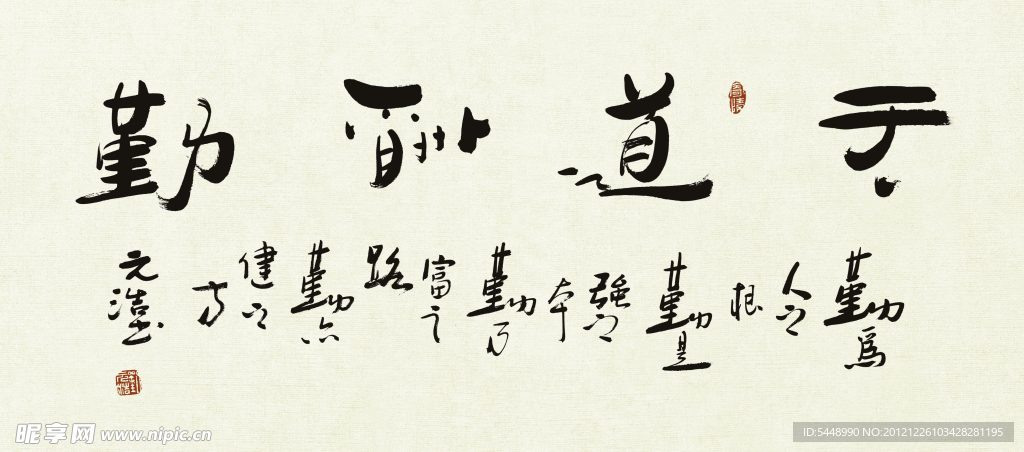 天道酬勤
勤為
人之
根
勤是
強之
本
勤乃
富之
路
勤亦
健之
方
元浩書
昵享网 www.nipic.cn
ID:5448990 NO:20121226103428281195